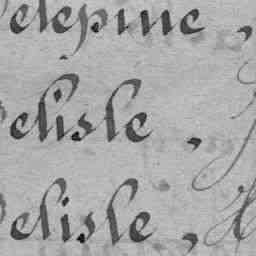 Delepine,
Delisle,
Delisle,